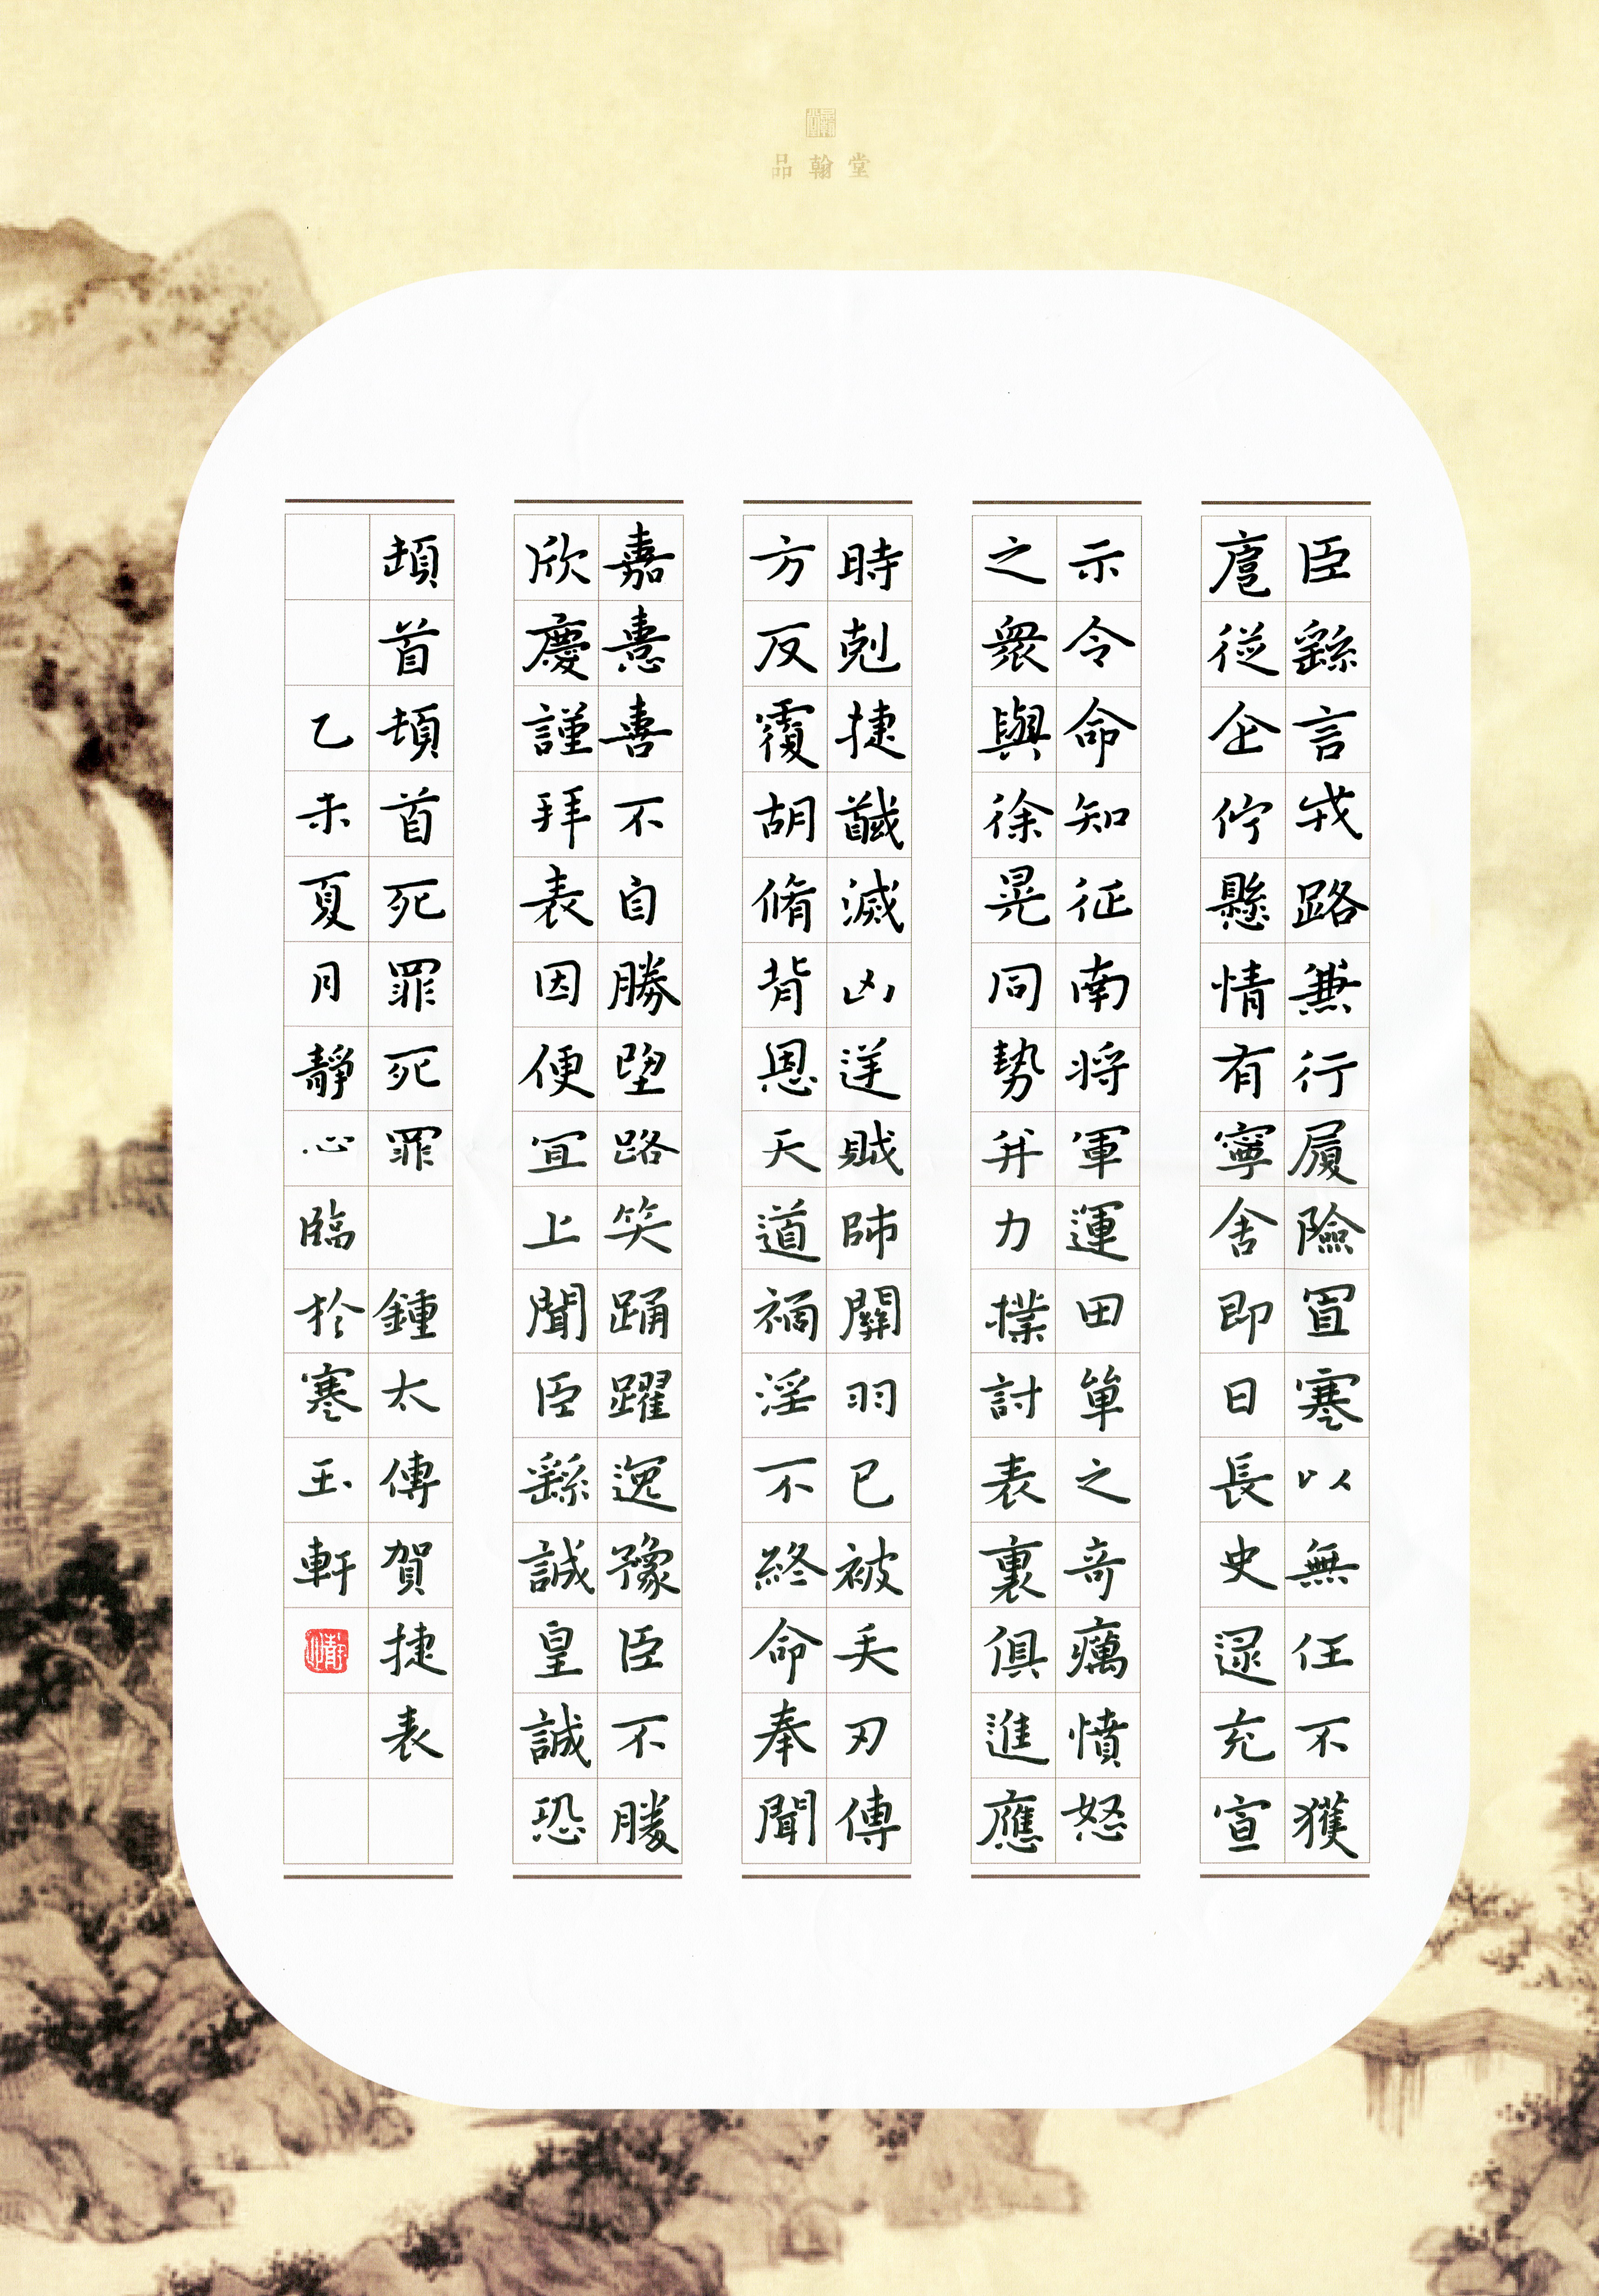 品翰堂
臣繇言戎路兼行履險冒寒以無任不獲
扈從企佇懸情有寧舍即日長史逯充宣
示令命知征南将軍運田單之奇癘憤怒
之衆與徐晃同勢并力撲討表裏俱進應
時剋捷馘滅凶逆賊帥關羽已被矢刃傅
方反覆胡脩背恩天道禍淫不終命奉聞
嘉憙喜不自勝望路笑踊躍逸豫臣不勝
欣慶謹拜表因便宜上聞臣繇誠皇誠恐
頓首頓首死罪死罪 鍾太傅賀捷表
乙未夏月靜心臨於寒玉軒